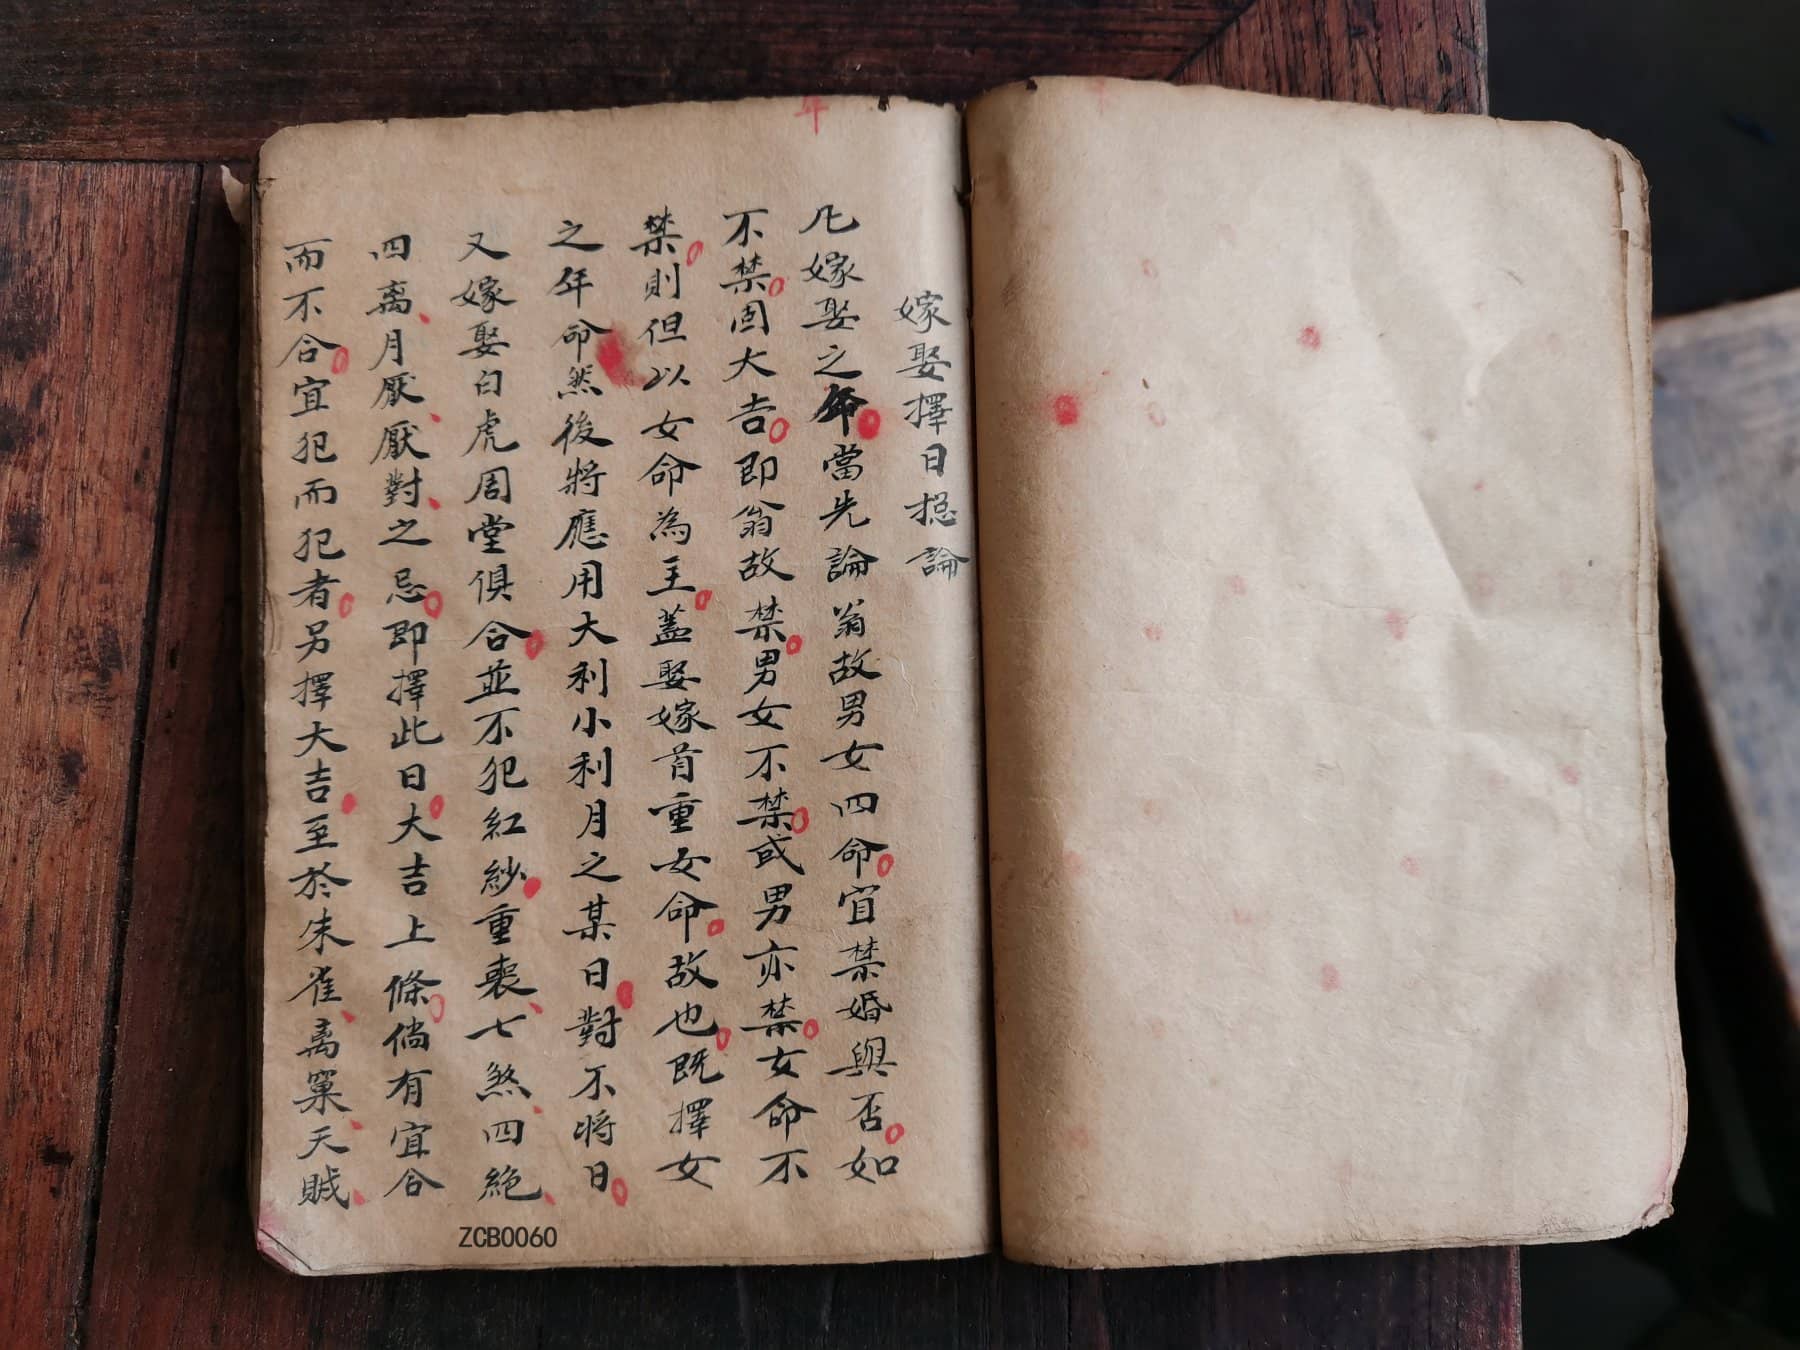 年
嫁娶擇日捴論
凢嫁娶之命當先論翁故男女四命宜禁婚與否如
不禁固大吉即翁故禁男女不禁或男亦禁女命不
禁則但以女命為主蓋娶嫁首重女命故也既擇女
之年命然後將應用大利小利月之某日對不將日
又嫁娶白虎周堂俱合並不犯紅紗重喪七煞四絶
四离月厭厭對之忌即擇此日大吉上條倘有宜合
而不合宜犯而犯者另擇大吉至於朱雀离窠天賊
ZCB0060